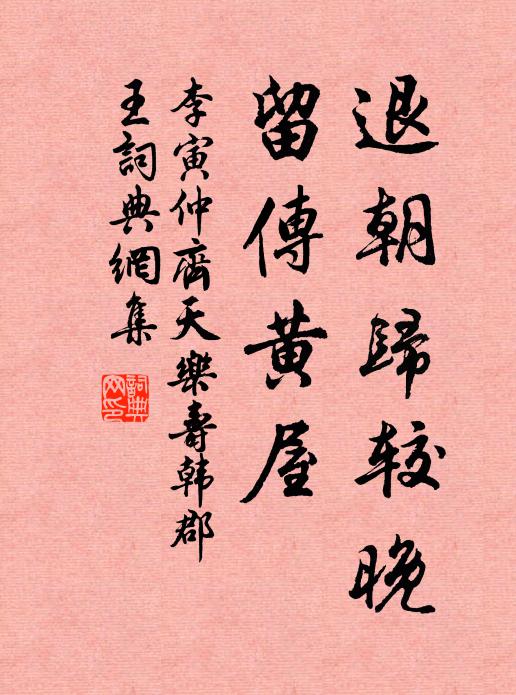 退朝歸较晚
留傳黄屋
李寅仲齊天樂壽韩郡
王詞典網集
詞典网印